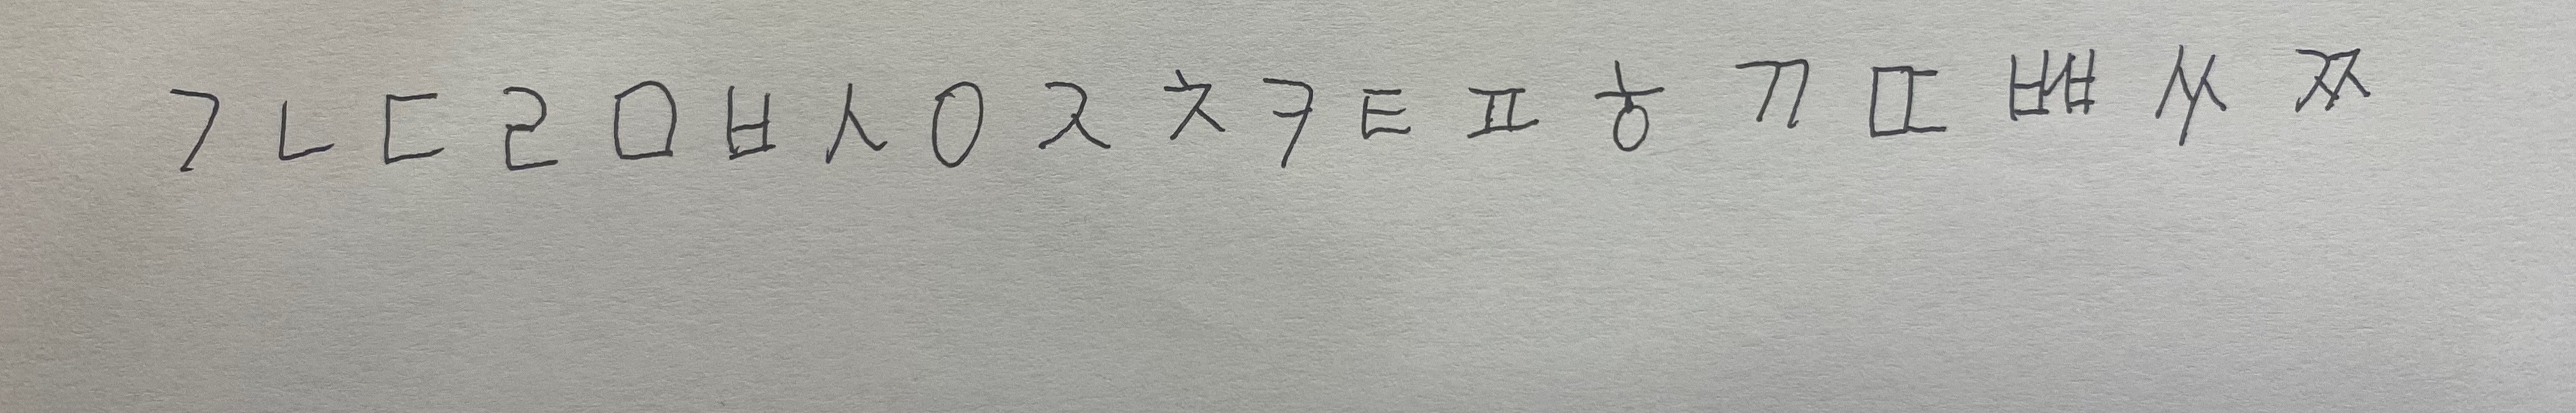 ㄱ ㄴ ㄷ ㄹ ㅁ ㅂ ㅅ ㅇ ㅈ ㅊ ㅋ ㅌ ㅍ ㅎ ㄲ ㄸ ㅃ ㅆ ㅉ